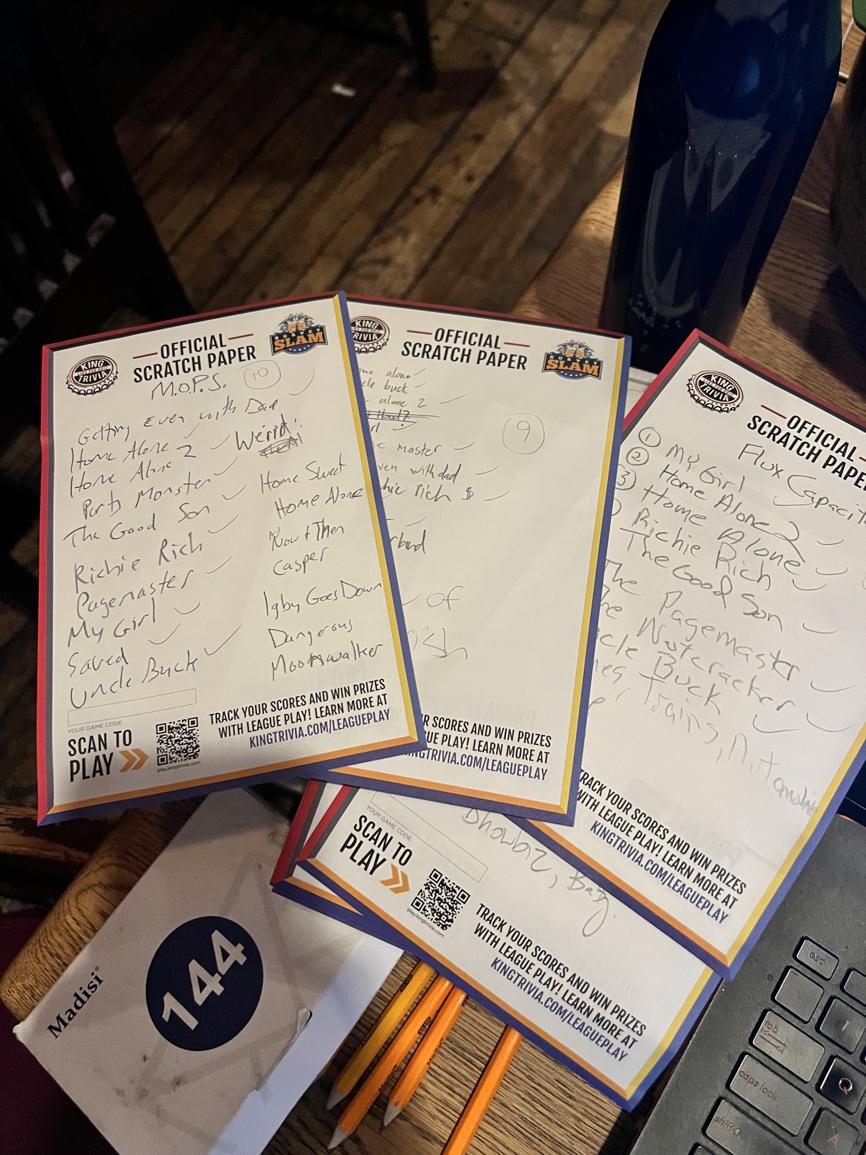 OFFICIAL
SCRATCH PAPER
KING TRIVIA
SLAM
M.O.P.S. 10
Getting Even with Dad
Home Alone
Home Alone 2
Party Monster
The Good Son
Richie Rich
Pagemaster
My Girl
Saved
Uncle Buck
Weird:
Home Sweet
Home Alone
Now & Then
Casper
Igby Goes Down
Dangerous
Moonwalker
YOUR GAME CODE
SCAN TO
PLAY
play.kingtrivia.com
TRACK YOUR SCORES AND WIN PRIZES
WITH LEAGUE PLAY! LEARN MORE AT
KINGTRIVIA.COM/LEAGUEPLAY
KING TRIVIA
OFFICIAL
SCRATCH PAPER
SLAM
me alone
cle buck
alone 2
9
rl
e master
ven with dad
chie rich $
of
R SCORES AND WIN PRIZES
UE PLAY! LEARN MORE AT
KINGTRIVIA.COM/LEAGUEPLAY
KING TRIVIA
OFFICIAL
SCRATCH PAPE
Flux Capacit
1 My Girl
2 Home Alone 2
3 Home Alone
Richie Rich
The Good Son
The Pagemaster
he Nutcracker
cle Buck
nes Trains, Automobiles
TRACK YOUR SCORES AND WIN PRIZES
WITH LEAGUE PLAY! LEARN MORE AT
KINGTRIVIA.COM/LEAGUEPLAY
YOUR GAME CODE
SCAN TO
PLAY
play.kingtrivia.com
TRACK YOUR SCORES AND WIN PRIZES
WITH LEAGUE PLAY! LEARN MORE AT
KINGTRIVIA.COM/LEAGUEPLAY
Madisi
144
esc
tab
caps lock
shift
1
Q
A